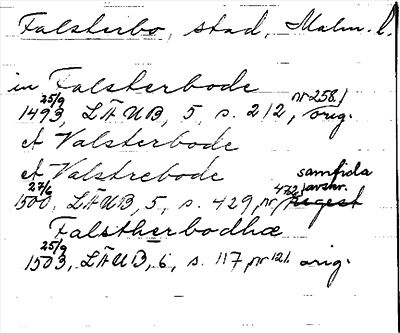 Falsterbo, stad, Malm. l.
in Falsterbode
25/9 1493, LÄUB, 5, s. 212, nr 258, orig.
et Valsterbode
et Valstrebode
27/6 1500, LÄUB, 5, s. 429, nr 472, samtida avskr. regest
Falstherbodhæ
25/9 1503, LÄUB, 6, s. 117, nr 121 orig.